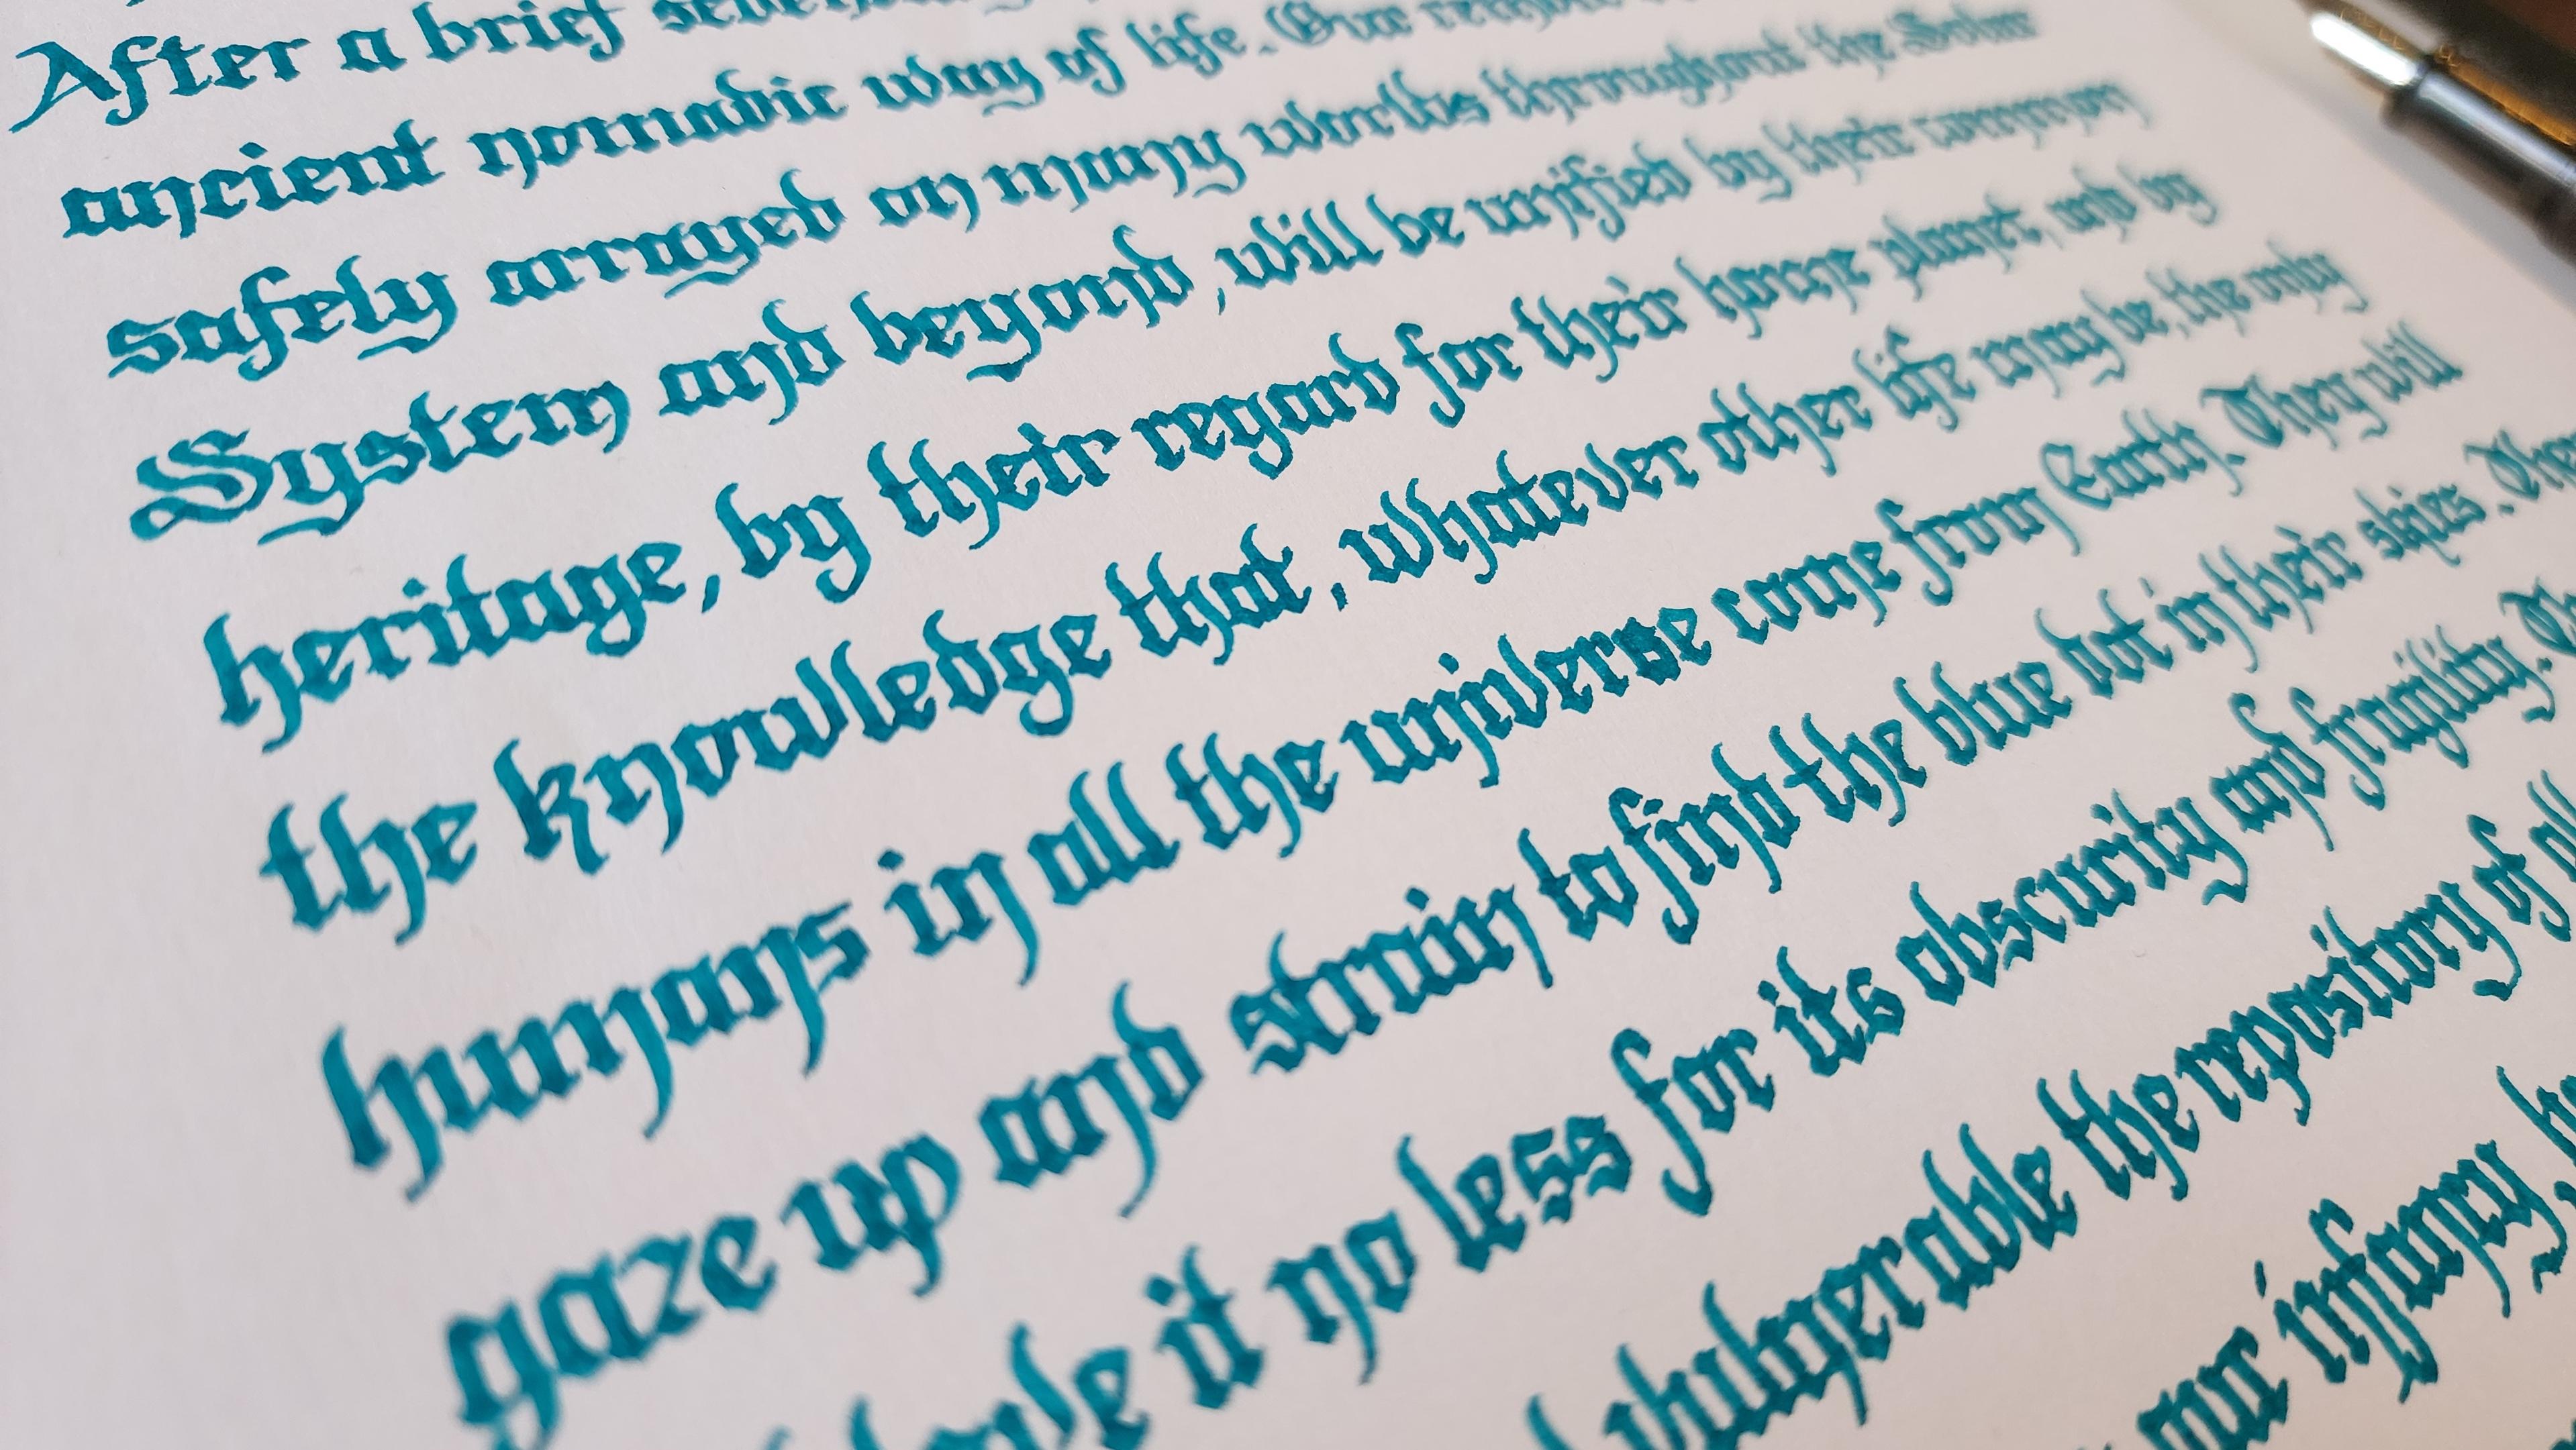 After a brief
ancient nomadic way of life. Our
safely arrayed on many worlds throughout the Solar
System and beyond, will be unified by their common
heritage, by their regard for their home planet, and by
the knowledge that, whatever other life may be, the only
humans in all the universe come from Earth. They will
gaze up and strain to find the blue dot in their skies. They
it no less for its obscurity and fragility.
vulnerable the repository of
our infancy,